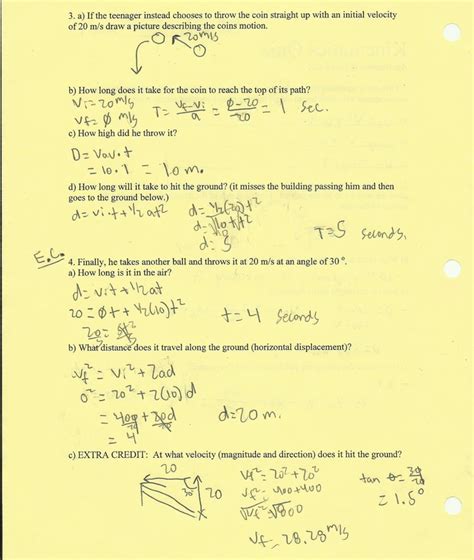 3. a) If the teenager instead chooses to throw the coin straight up with an initial velocity
of 20 m/s draw a picture describing the coins motion.
20m/s
b) How long does it take for the coin to reach the top of its path?
Vi=20m/s
Vf=Ø m/s T= Vf-Vi/a = Ø-20/-20 = 1 Sec.
c) How high did he throw it?
D= Vav.t
=10.1 = 10 m.
d) How long will it take to hit the ground? (it misses the building passing him and then
goes to the ground below.)
d= vi.t+1/2at²
d=1/2(20)t²
d: 5
T=5 Seconds.
E.C.
4. Finally, he takes another ball and throws it at 20 m/s at an angle of 30°.
a) How long is it in the air?
d= vit+1/2at
20=Øt+1/2(10)t²
t=4 Seconds
b) What distance does it travel along the ground (horizontal displacement)?
Vf²= Vi²+2ad
0²=20²+2(10)d
=4
d=20m.
c) EXTRA CREDIT: At what velocity (magnitude and direction) does it hit the ground?
20
30°
20
Vf²=20²+20²
Vf²=400+400
√Vf²=√800
Vf=28.28m/s
=1.5°